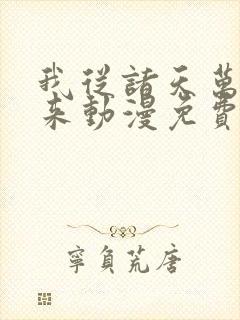 我從諸天萬
來動漫免費
寧負荒唐